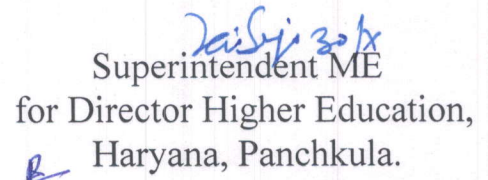 30/x
Superintendent ME
for Director Higher Education,
Haryana, Panchkula.